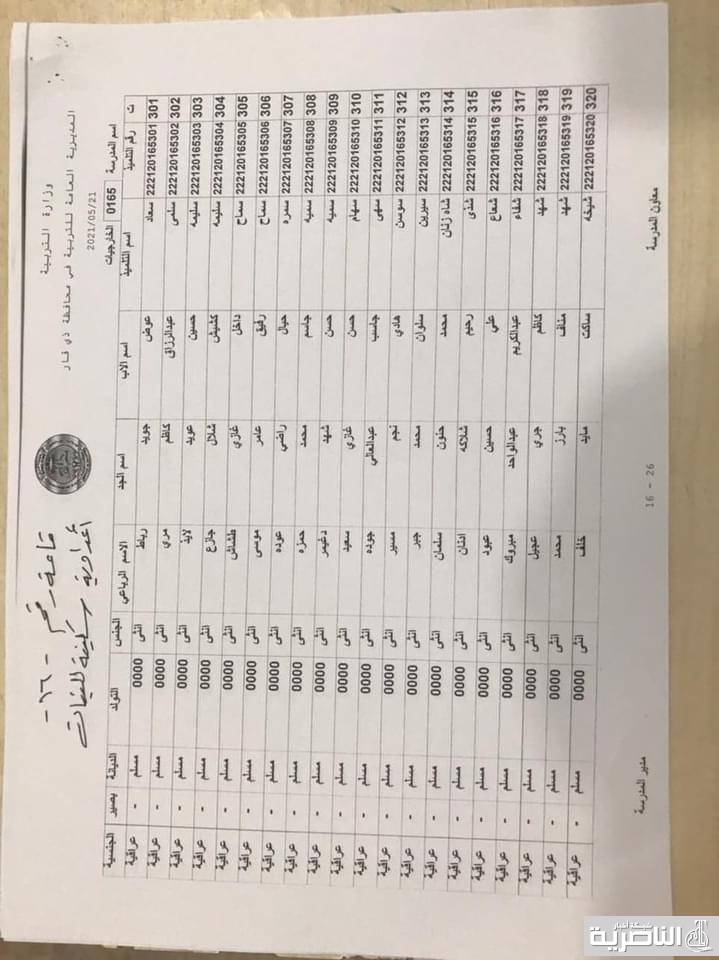 وزارة التربية
المديرية العامة للتربية في محافظة ذي قار
2021/05/21
قاعة رقم - ١٦ -
اعدادية سكينة للبنات
اسم المدرسة 0165 الخارجيات
ت رقم التلميذ اسم التلميذ اسم الاب اسم الجد الاسم الرباعي الجنس التولد الديانة بصير الجنسية
301 222120165301 سعاد عوض جويد رباط انثى 0000 مسلم - عراقية
302 222120165302 سلمى عبدالرزاق كاظم مري انثى 0000 مسلم - عراقية
303 222120165303 سليمه حسين عويد لايذ انثى 0000 مسلم - عراقية
304 222120165304 سليمه كشيش شلال جازع انثى 0000 مسلم - عراقية
305 222120165305 سماح داخل غازي طشاش انثى 0000 مسلم - عراقية
306 222120165306 سماح رفيق عامر موسى انثى 0000 مسلم - عراقية
307 222120165307 سمره حيال راضي عوده انثى 0000 مسلم - عراقية
308 222120165308 سميه جاسم محمد حمزه انثى 0000 مسلم - عراقية
309 222120165309 سميه حسن شهد دغيمر انثى 0000 مسلم - عراقية
310 222120165310 سهام حسن غازي سعيد انثى 0000 مسلم - عراقية
311 222120165311 سهى جاسب عبدالعالي جوده انثى 0000 مسلم - عراقية
312 222120165312 سوسن هادي نجم مسير انثى 0000 مسلم - عراقية
313 222120165313 سيرين سلوان محمد جبر انثى 0000 مسلم - عراقية
314 222120165314 شاه زنان محمد حنون سلمان انثى 0000 مسلم - عراقية
315 222120165315 شذى رحيم شلاكه انثى 0000 مسلم - عراقية
316 222120165316 شعاع علي حسين عبود انثى 0000 مسلم - عراقية
317 222120165317 شفاء عبدالكريم عبدالواحد مبروك انثى 0000 مسلم - عراقية
318 222120165318 شهد كاظم جري عجيل انثى 0000 مسلم - عراقية
319 222120165319 شهد مناف بارز محمد انثى 0000 مسلم - عراقية
320 222120165320 شيخه ساكت خلف انثى 0000 مسلم - عراقية
معاون المدرسة
16 - 26
مدير المدرسة
شبكة اخبار
الناصرية